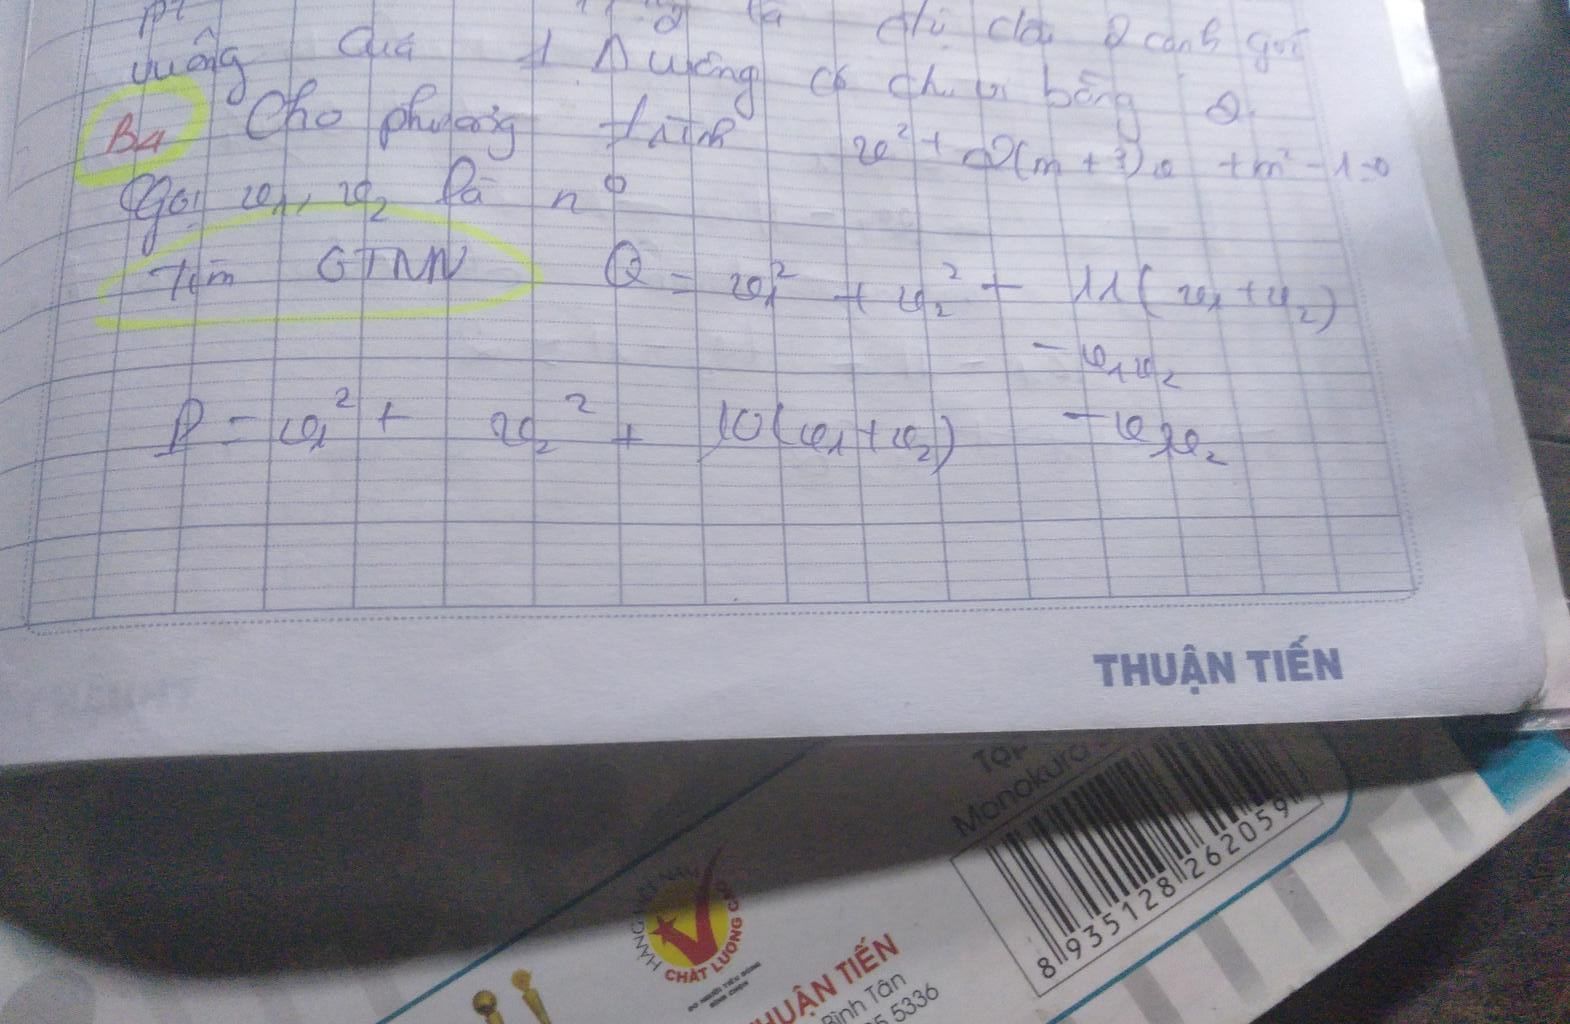 là độ dài 2 cạnh góc
vuông của 1 Δ vuông có ch. vi bằng 2.
B4 Cho phương trình x² + 2(m + 3)x + m² - 1 = 0
Gọi x₁, x₂ là n⁰
Tìm GTNN Q = x₁² + x₂² + 11(x₁ + x₂)
- x₁x₂
P = x₁² + x₂² + 10(x₁ + x₂) - x₁x₂
THUẬN TIẾN
TẬP
Monokuro
8 935128 262059
CHẤT LƯỢNG CAO
THUẬN TIẾN
Bình Tân
5 5336